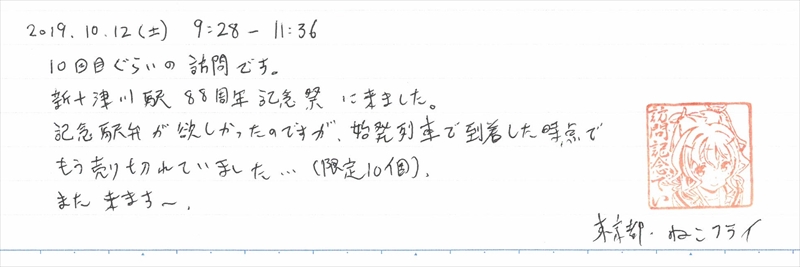 2019.10.12(土) 9:28-11:36
10回目ぐらいの訪問です。
新十津川駅 88周年記念祭 に来ました。
記念駅弁が欲しかったのですが、始発列車で到着した時点で
もう売り切れていました…(限定10個)。
また 来ます〜。
訪問記念
東京都・ねこフライ